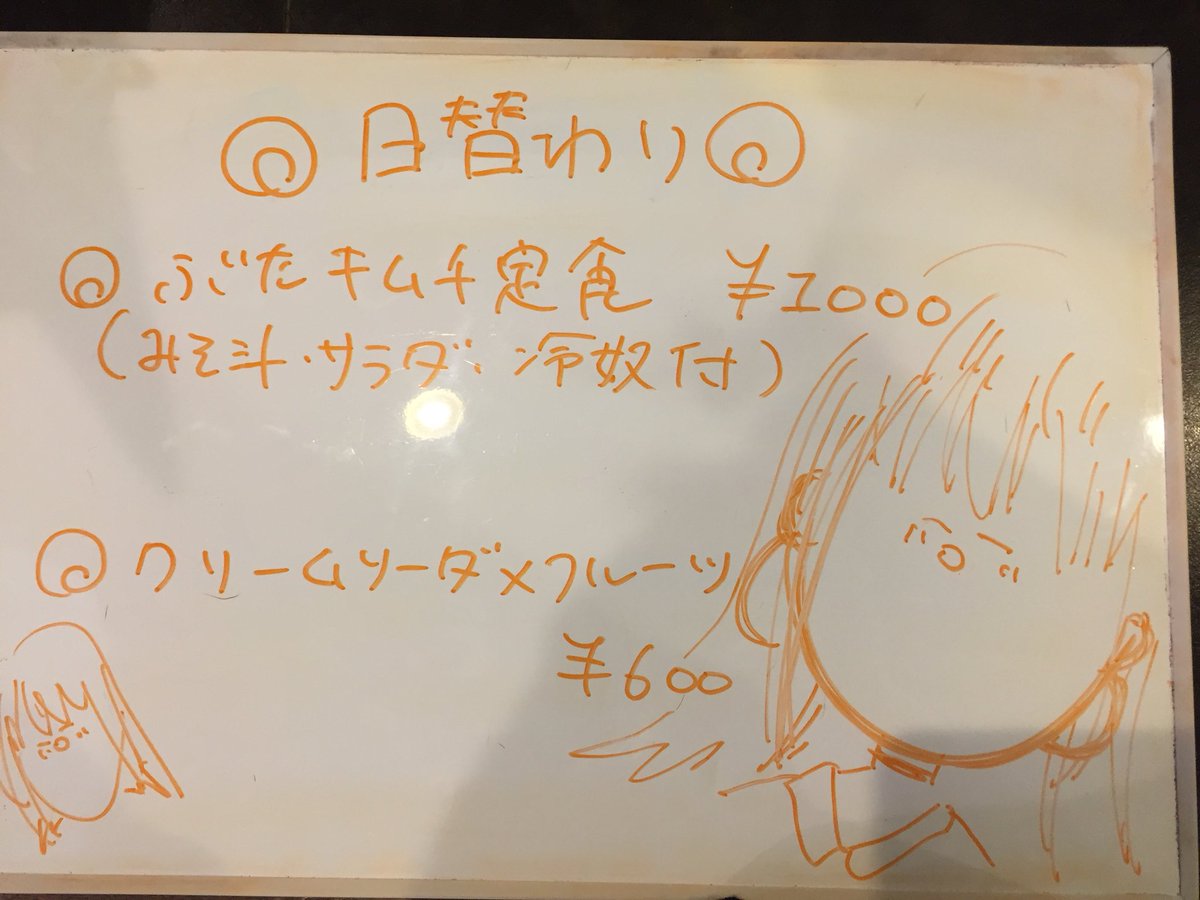 ◎日替わり◎
◎ぶたキムチ定食 ¥1000
(みそ汁・サラダ・冷奴付)
◎クリームソーダ×フルーツ
¥600